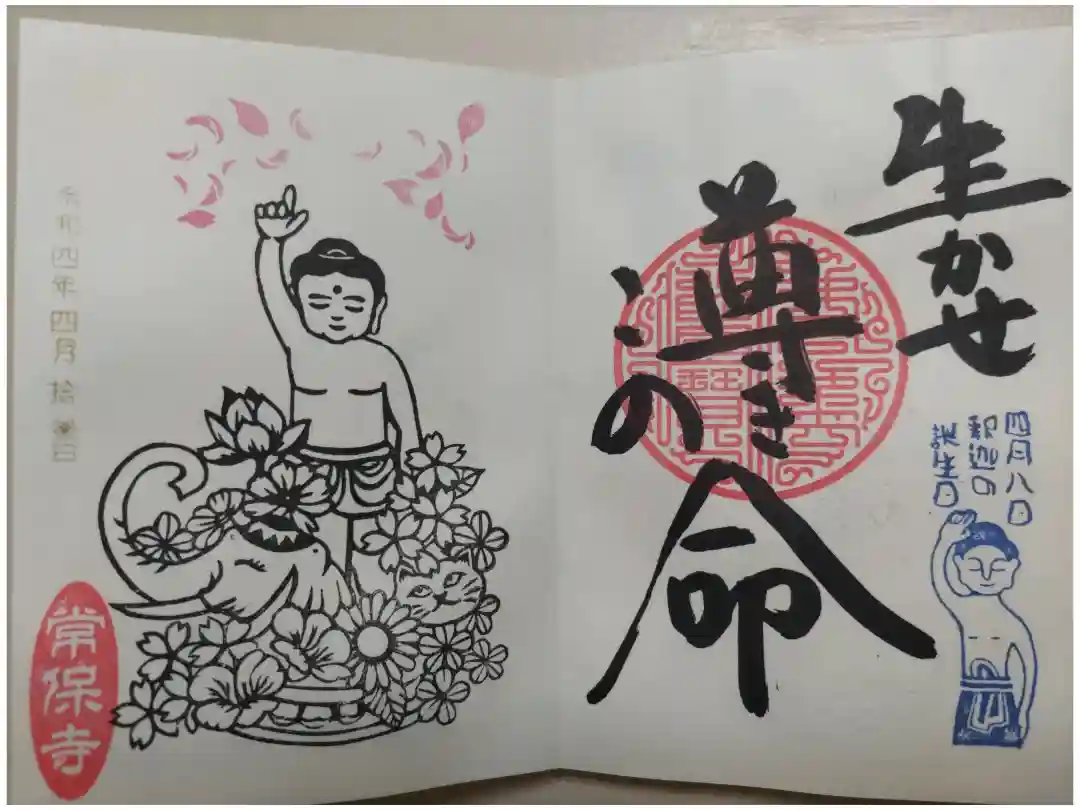 生かせ
尊き
この命
四月八日
釈迦の
誕生日
令和四年四月拾
日
常保寺